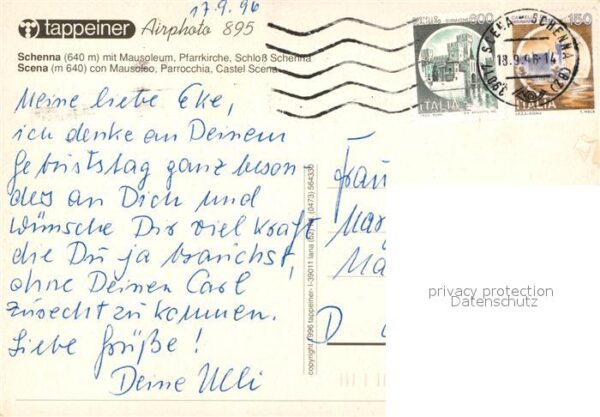 17.9.96
tappeiner Airphoto 895
Schenna (640 m) mit Mausoleum, Pfarrkirche, Schloß Schenna
Scena (m 640) con Mausoleo, Parrocchia, Castel Scena
Meine liebe Eke,
ich denke an Deinem
Geburtstag ganz beson-
ders an Dich und
wünsche Dir viel Kraft
die Du ja brauchst,
ohne Deinen Carl
zurecht zu kommen.
Liebe Grüße!
Deine Ulli
copyright 1996 tappeiner- I-39011 lana (bz) (0473) 564330
600
ITALIA
150
ITALIA
SCENA - SCHENNA (BZ)
18.9.96-14
Frau
Mar
D
privacy protection
Datenschutz